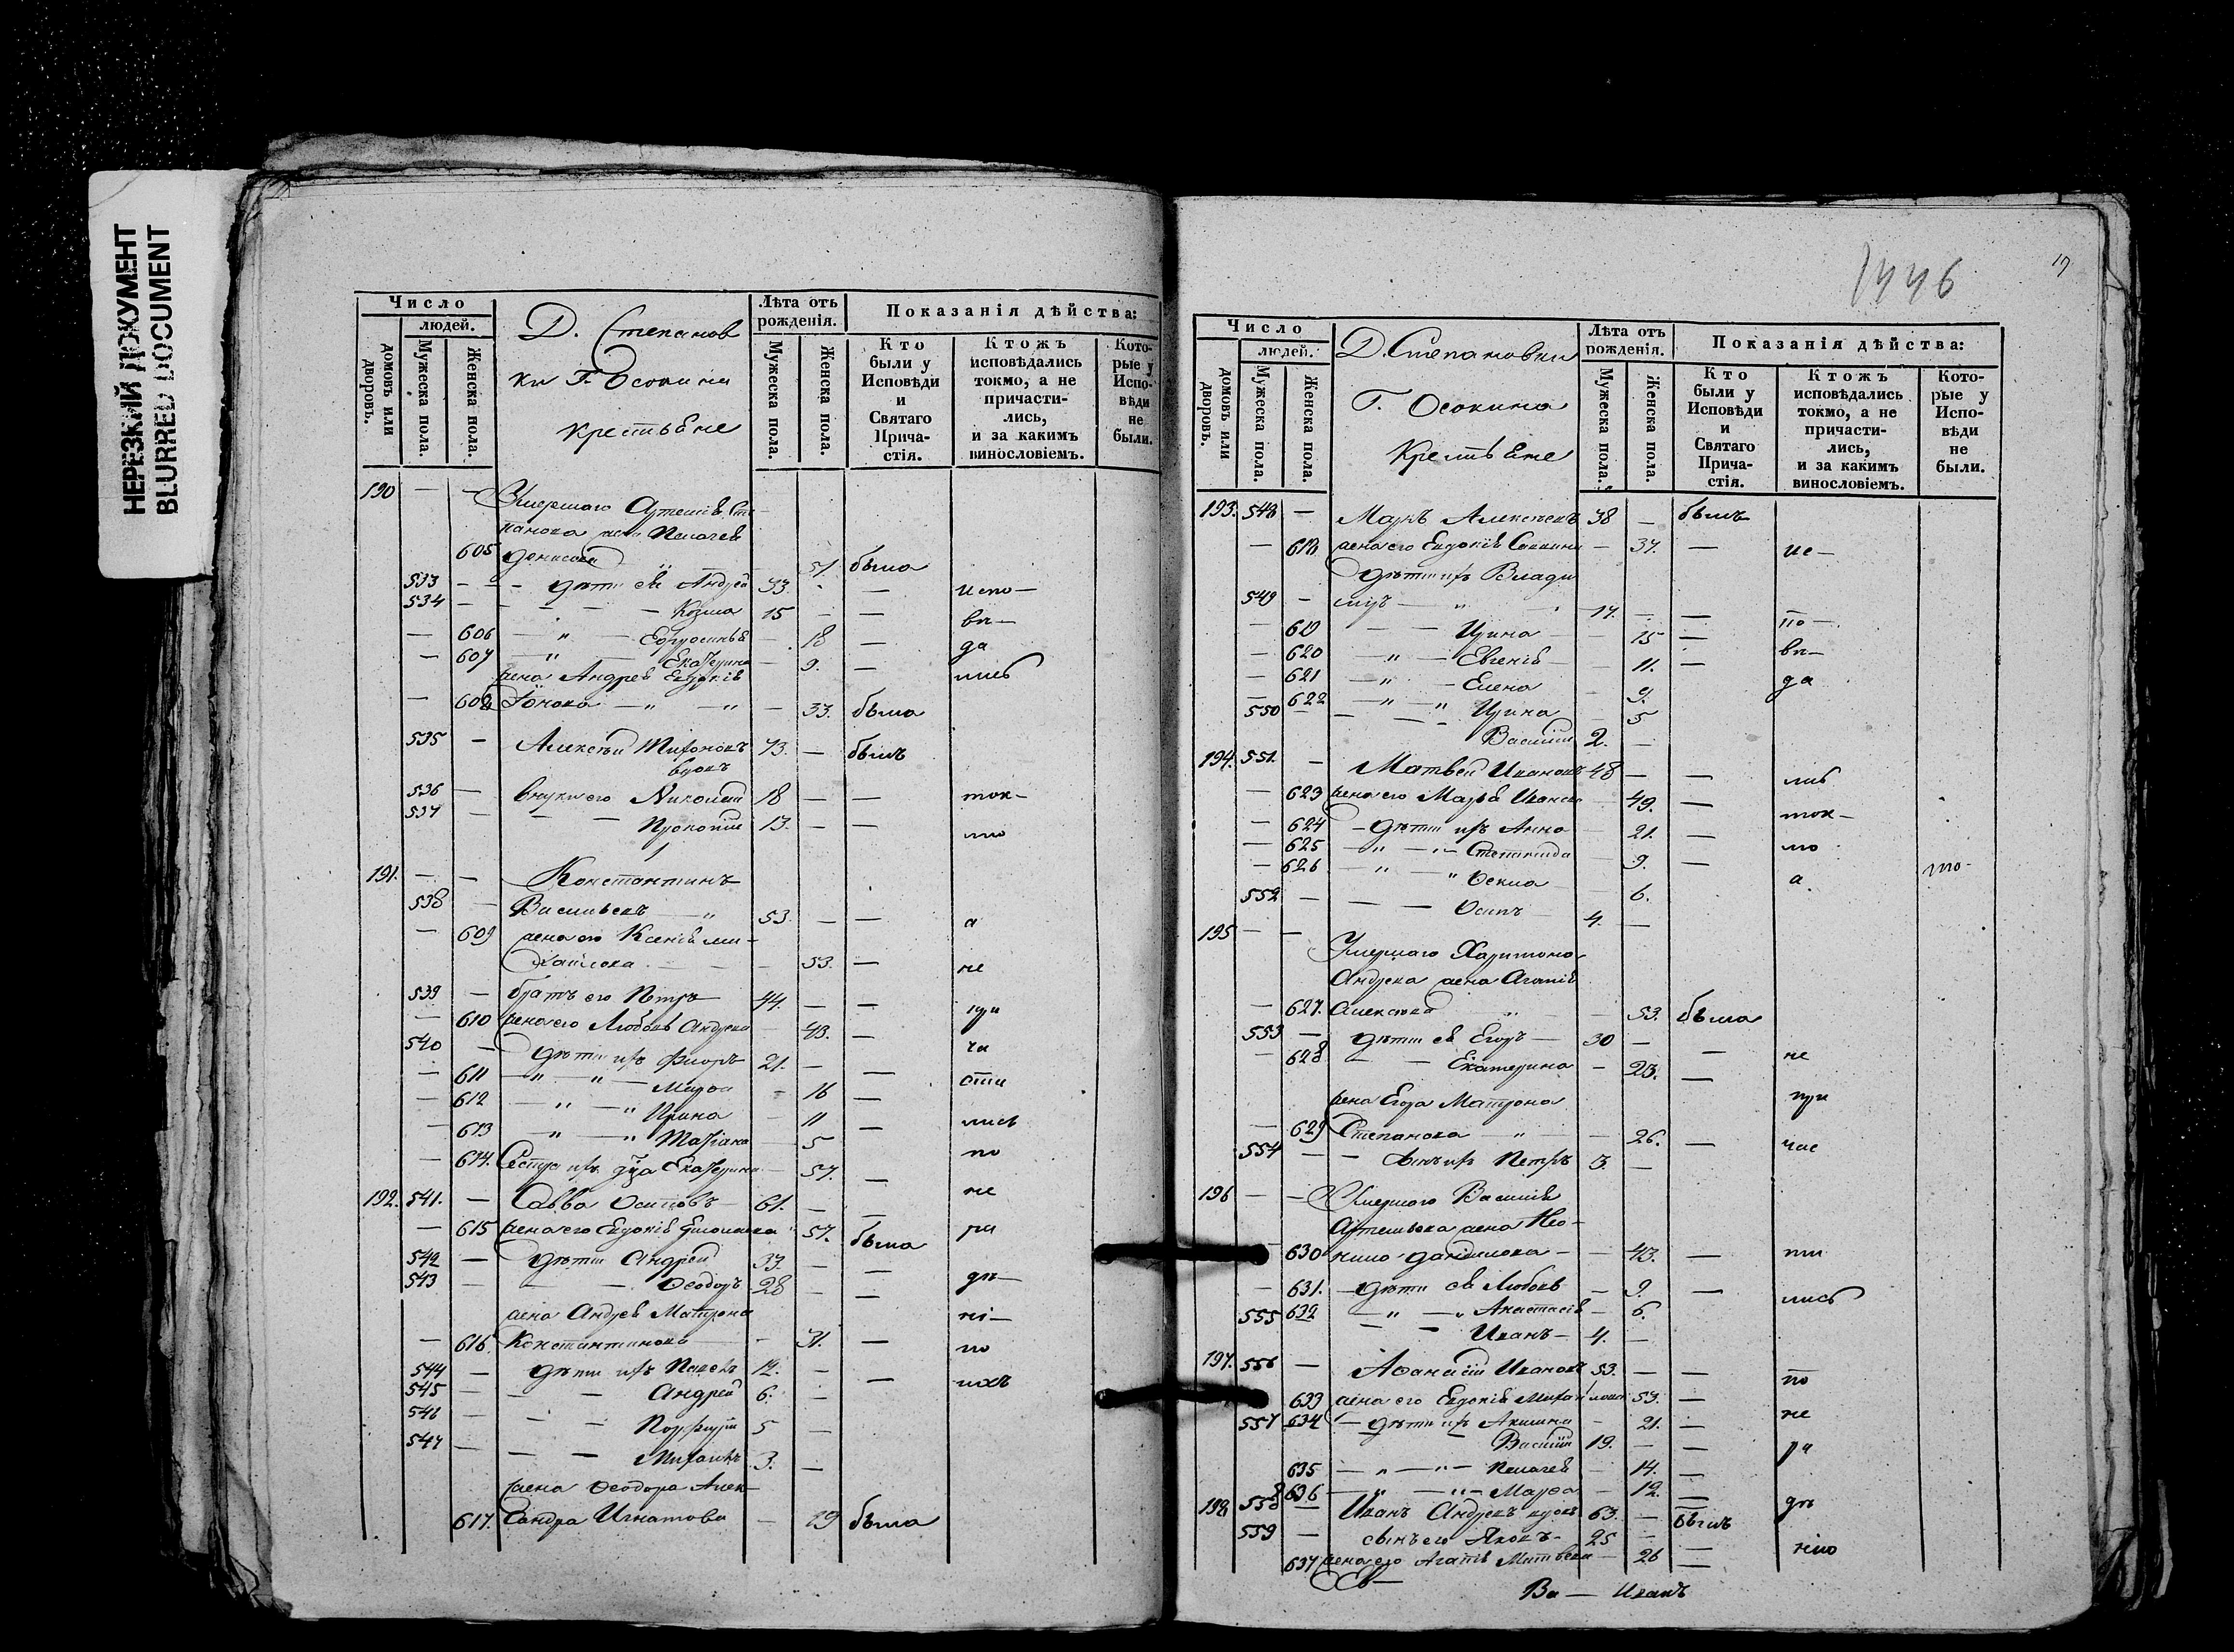 НЕРЕЗКИЙ ДОКУМЕНТ
BLURRED DOCUMENT
Число
людей.
домовъ или дворовъ.
Мужеска пола.
Женска пола.
Д. Степанов
ки Г. Осокина
крестьяне
Лѣта отъ рожденія.
Мужеска пола.
Женска пола.
Показанія дѣйства:
Кто были у Исповѣди и Святаго Причастія.
Ктожъ исповѣдались токмо, а не причастились, и за какимъ винословіемъ.
Которые у Исповѣди не были.
190 — — Умершаго Артемія Сте
панова жена Пелагея
605 Денисова 51. была
533 — — дѣти ея Андрей 33. — — испо—
534 — — — Козма 15 — — вѣ—
— 606 — " — Ефросинья — 18 — да
— 607 — " — Екатерина — 9. — лись
жена Андрея Евдокія
— 608 — " — " — 33. была
535 — Алексѣй Тихоновъ 73. — былъ
вдовъ
536 — внуки его Николай 18 — — ток—
537 — — — Прокопій 13. — — мо
191. — — Константинъ
538 — Васильевъ — " 53. — — а
— 609 жена его Ксенія Ми—
хайлова — — 53. — не
539 — братъ его Петръ 44. — — при
— 610 жена его Любовь Андреева — 43. — ча
540 — дѣти ихъ Флоръ 21. — — сти
— 611 — " — " — Марфа — 16 —
— 612 — " — " Ирина — 11 — лись
— 613 — " — " Татіана — 5 по
— 614. Сестра ихъ Екатерина — 57. — не
192. 541. — Савва Осиповъ 61. — —
— 615 жена его Евдокія 57. была ра
542 — дѣти Андрей 33. — — дѣ—
543 — — — Ѳеодоръ 28 — —
жена Андрея Матрона ні—
— 616. Константинова — — 31. — по
544 — дѣти ихъ Павелъ 12. — — ихъ
545 — — — Андрей 6. —
546 — — — Порфирій 5 —
547 — — — Михаилъ 3. —
жена Ѳеодора Алек—
617. сандра Игнатова — 29 была
1446
19
Число
людей.
домовъ или дворовъ.
Мужеска пола.
Женска пола.
Д. Степановки
Г. Осокина
Крестьяне
Лѣта отъ рожденія.
Мужеска пола.
Женска пола.
Показанія дѣйства:
Кто были у Исповѣди и Святаго Причастія.
Ктожъ исповѣдались токмо, а не причастились, и за какимъ винословіемъ.
Которые у Исповѣди не были.
193. 548 — Маркъ Алексѣевъ 38 — былъ
— 618 жена его Евдокія Саввина — 37. — ис—
дѣти ихъ Влади
549 — міръ — " 17. — — по—
— 619 — — Ирина — 15 — вѣ—
— 620 — " — Евгенія — 11. — да
— 621 — " — Елена — 9.
— 622 — " — " Ирина — 5
550 — — — Василій 2. —
194. 551. — Матвей Ивановъ 48 — — лись
— 623 жена его Марья Иванова — 49. — ток—
— 624 — дѣти ихъ Анна — 21. — мо
— 625 — " — " — Степанида — 9. — а.
— 626 — " — " Ѳекла — 6. мо—
552 — — — Осипъ 4. —
195 — — Умершаго Харитона
Андреева жена Агапія
— 627. Алексѣева — 53. была
553 — дѣти ея Егоръ 30 — — не
— 628 — — Екатерина — 23. —
жена Егора Матрона при
— 629 Степанова — " — 26. — час
554 — — сынъ ихъ Петръ 3. —
196 — — Умершаго Василія
Артемьева жена Нео—
— 630 нила Данилова — — 43. — ти
— 631. — дѣти ея Любовь — 9. — лись
632 — " — " Анастасія — 6.
555 — — Иванъ 4. —
197. 556 — Аѳанасій Ивановъ 53. — — по
633 жена его Евдокія Михайлова 53. — не
634 — дѣти ихъ Акилина — 21. —
557 — Василій 19. — — ра
635 — " — " — Пелагея — 14. —
636 — " — " — Марѳа — 12. — дѣ
198 558 — Иванъ Андреевъ вдовъ 63. — былъ
559 — сынъ его Яковъ 25 — — нію
637 жена его Агапія Матвеева — 26 —
Ва — Иванъ